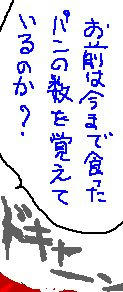 お前は今まで食った
パンの数を覚えて
いるのか？
ドキャーン